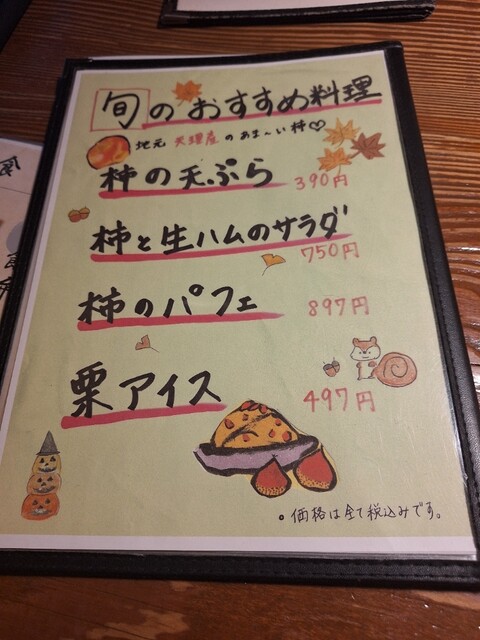 旬のおすすめ料理
地元 天理産のあま〜い柿♡
柿の天ぷら 390円
柿と生ハムのサラダ 750円
柿のパフェ 897円
栗アイス 497円
。価格は全て税込みです。